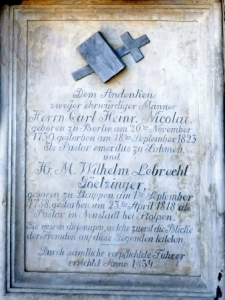 Dem Andenken
zweyer ehrwürdiger Männer
Herrn Carl Heinr. Nicolai,
geboren zu Berlin am 20ten November
1739, gestorben am 18ten September 1823
als Pastor emeritus zu Lohmen,
und
H. M. Wilhelm Lebrecht
Götzinger,
geboren zu am 1ten September
1758, gestorben am 23ten April 1818 als
Pastor in Neustadt bei Stolpen.
Sie waren diejenigen, welche zuerst die Blicke
der Fremden auf diese Gegenden leiteten.
Durch sämtliche verpflichtete Führer
errichtet Anno 1834.